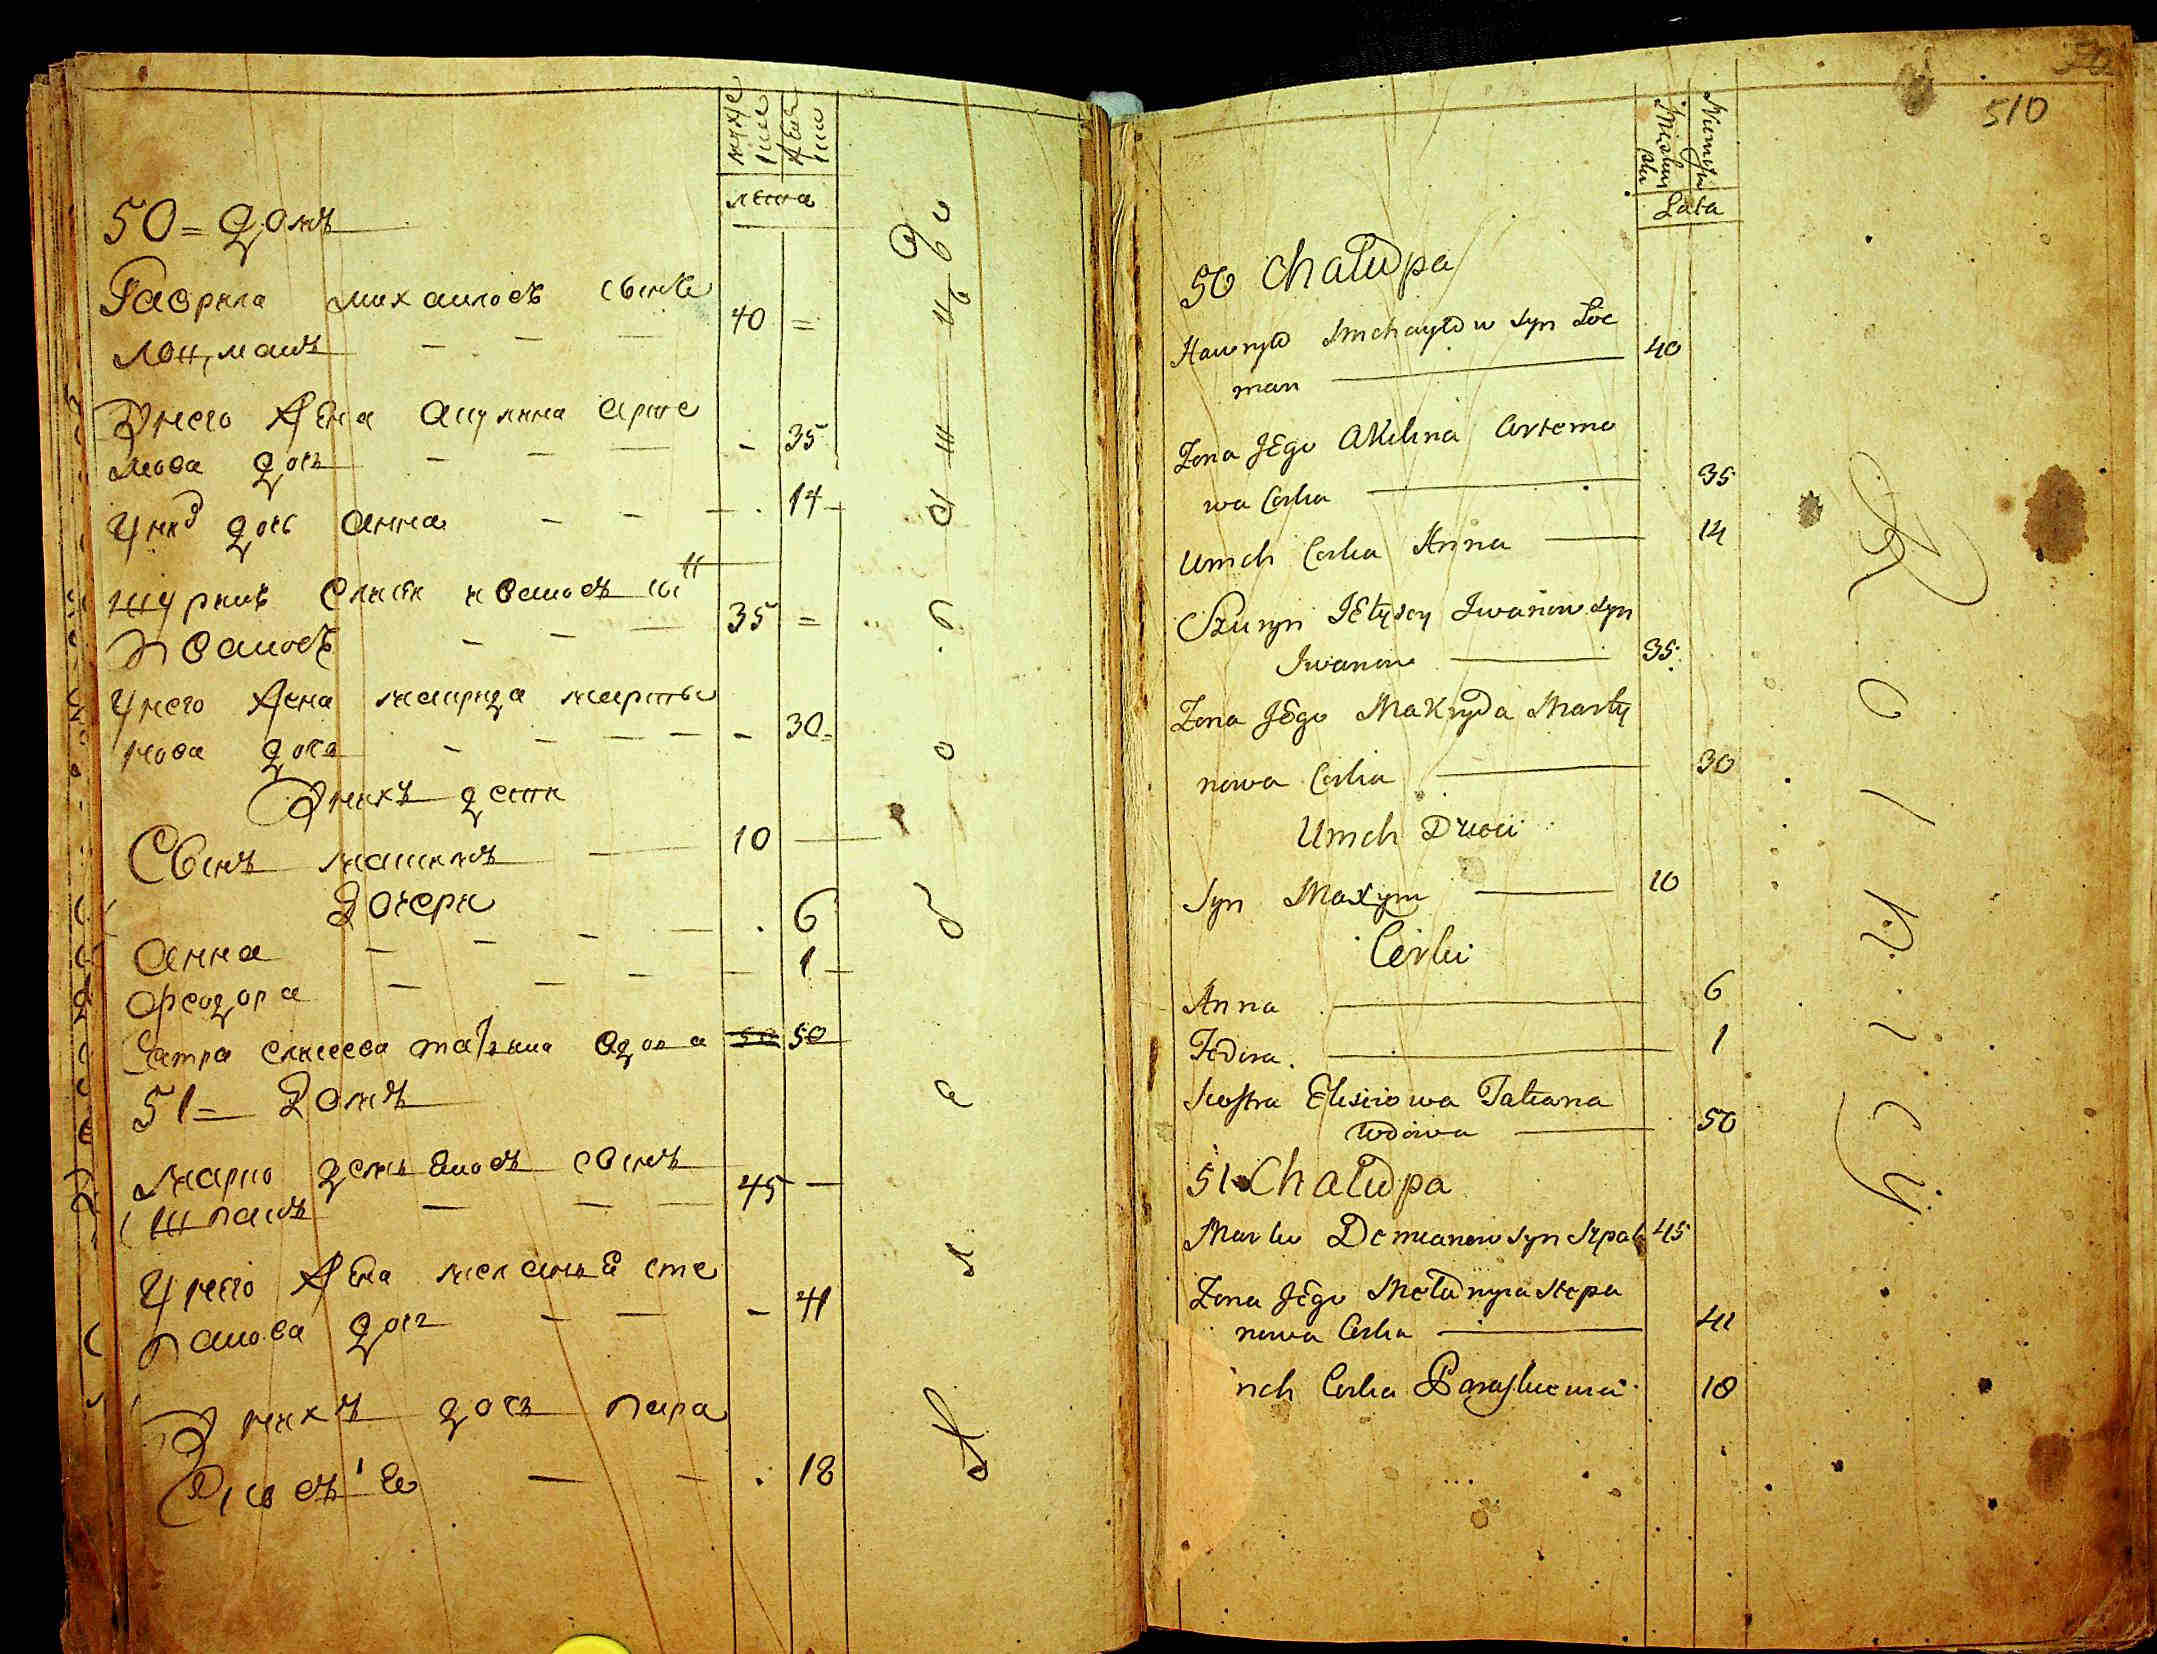 муже
ские
жен
ски
лета
50 = домъ
Гаврила михаиловъ сынъ
лоцманъ 40 =
У него жена акулина арте
мова дочь - 35
У них дочь анна 14
шуринъ елисѣй ивановъ сы
н
ивановъ 35 =
У него жена макрида марты
нова дочь - 30
У нихъ дети
Сынъ максимъ 10
Дочери
анна 6
феодора 1
Сестра елисеева татьяна вдова 50 50
51 = Домъ
марко демьяновъ сынъ
шпакъ 45
У него жена меланья сте
панова дочь - 41
У нихъ дочь пара
скевъя 18
510
Męskie
Lata
50 Chałupa
Hawryło Michayłow syn Łoc
man 40
Zona Jego Akilina Artemo
wa Corka 35
Umch Corka Anna 14
Szuryn Jełysey Iwanow syn
Iwanow 35
Zona Jego Makryda Marty
nowa Corka 30
Umch Dzieci
Syn Maxym 10
Corki
Anna 6
Fedora 1
Siostra Elisieiowa Tatiana
wdowa 50
51 Chałupa
Marko Demianow syn Szpak 45
Zona Jego Mełanyia Stepa
nowa Corka 41
nch Corka Paraskiewia 18
R O L N I C Y